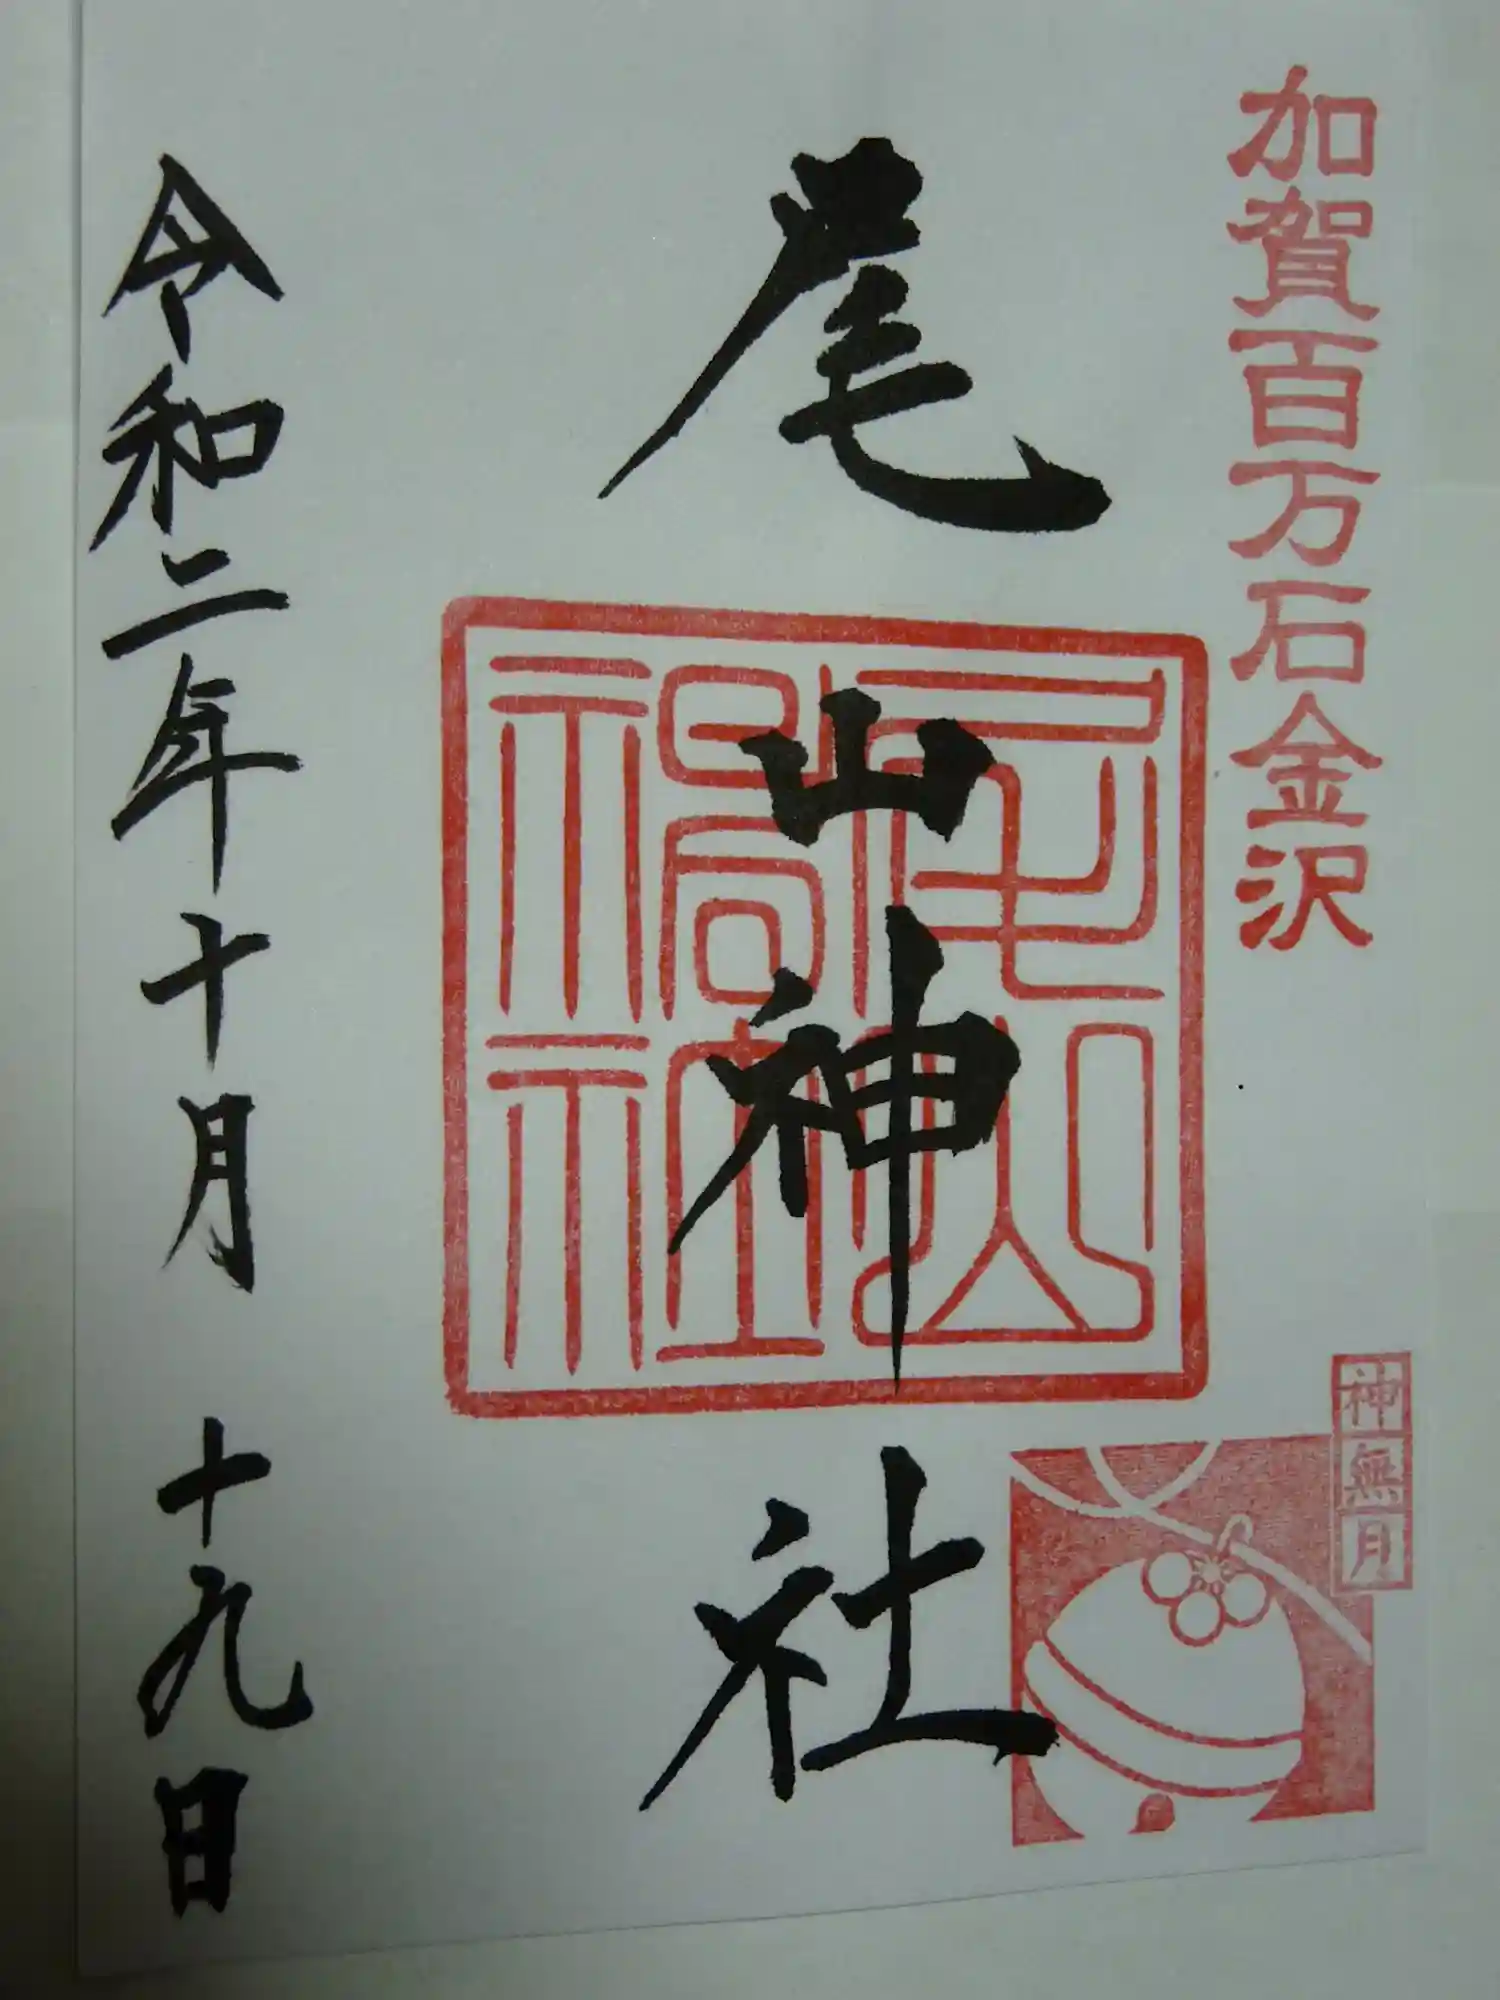 加賀百万石金沢
尾山神社
尾山神社
神無月
令和二年十月十九日